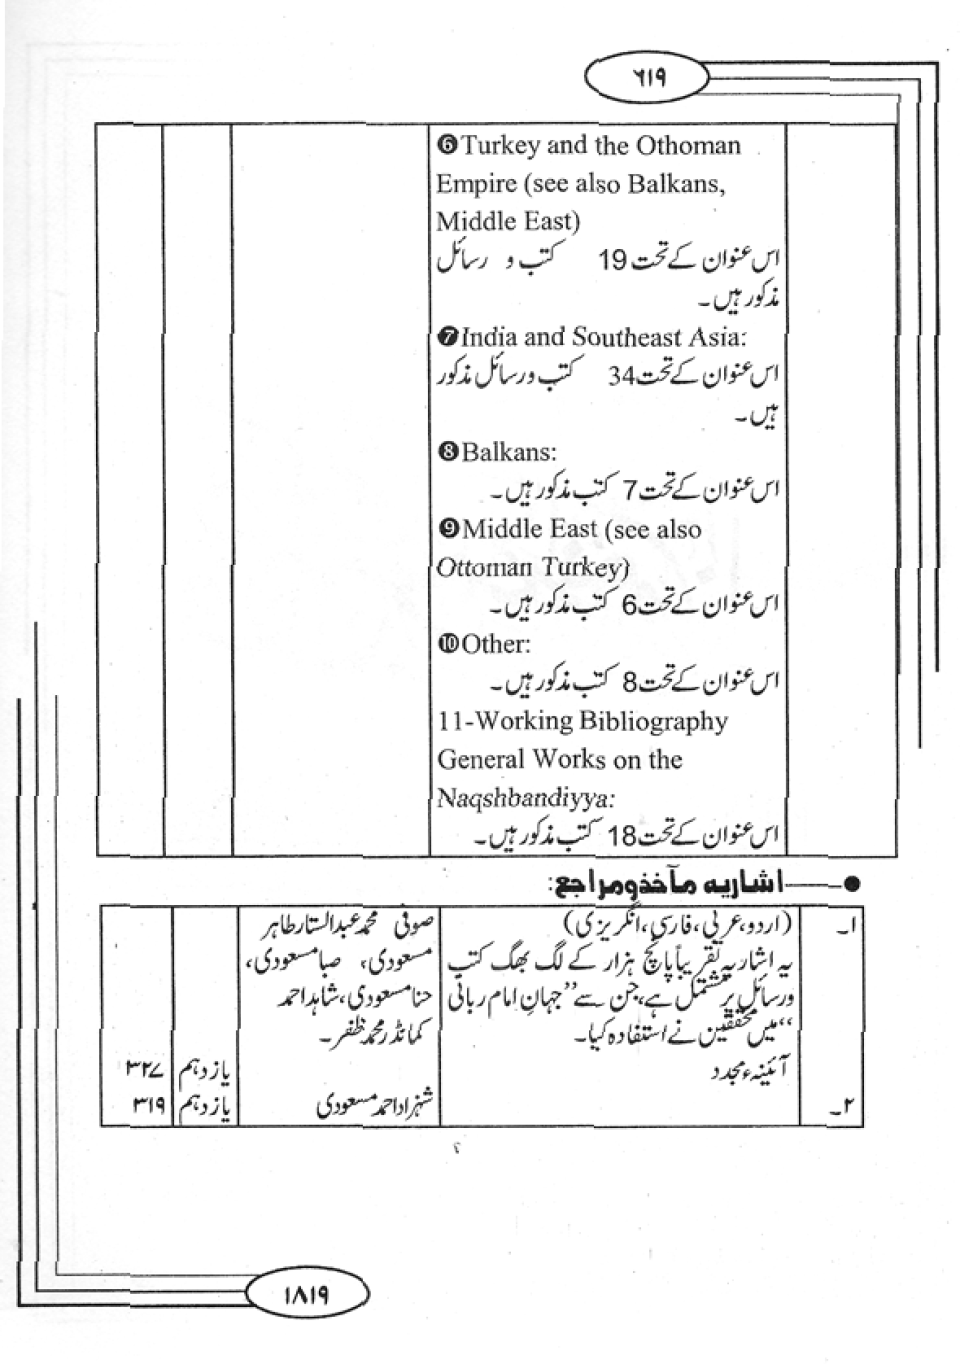 ۶۱۹
❻Turkey and the Othoman
Empire (see also Balkans,
Middle East)
اس عنوان کے تحت 19 کتب و رسائل
مذکور ہیں۔
❼India and Southeast Asia:
اس عنوان کے تحت 34 کتب و رسائل مذکور
ہیں۔
❽Balkans:
اس عنوان کے تحت 7 کتب مذکور ہیں۔
❾Middle East (see also
Ottoman Turkey)
اس عنوان کے تحت 6 کتب مذکور ہیں۔
❿Other:
اس عنوان کے تحت 8 کتب مذکور ہیں۔
11-Working Bibliography
General Works on the
Naqshbandiyya:
اس عنوان کے تحت 18 کتب مذکور ہیں۔
●——اشاریہ مآخذ و مراجع:
۱۔ (اردو، عربی، فارسی، انگریزی) صوفی محمد عبدالستار طاہر
یہ اشاریہ تقریباً پانچ ہزار کے لگ بھگ کتب مسعودی، صبا مسعودی،
و رسائل پر مشتمل ہے، جن سے ”جہانِ امام ربانی حنا مسعودی، شاہد احمد
“ میں محققین نے استفادہ کیا۔ کمانڈر محمد ظفر۔
آئینہء مجدد یازدہم ۳۲۷
۲۔ شہزاد احمد مسعودی یازدہم ۳۱۹
۱۸۱۹